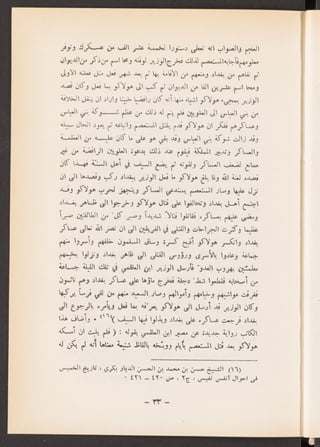 العجم والصواب انه تعطى دستورا لخمسة عشر الف من عسكرك وتوفر
معلومهم فأجابه المستعصم لذلك فخرج الوزير لوقته ومحا اسم من ذكر من الديوان
ثم نفاهم من بغداد ومنعهم من الاقامة بها ثم بعد شهر فعل مثل فعلته الأولى
ومحا اسم عشرين الفا من الديوان ثم كتب الى هولاكو بما فعل وكان قصد
الوزير بمجيء هولاكو اشياء منها أنه كان رافضيا خبيثا وأراد ان ينقل الخلافة
من بني العباس الى العلويين فلم يتم له ذلك من عظم شوكة بني العباس
وعساكرهم ففكر ان هولاكو قدم يقتل المستعصم واتباعه ثم يعود الحال سبيله
وقد زالت شوكة بني العباس وقد بقي هو على ما كان عليه من العظمة
والعساكر وتدبير المملكة فيقوم عند ذلك بدعوة العلويين الرافضة من غير
ممانع لضعف العساكر ولقوته ثم يضع السيف في أهل السنة فهذا كان
قصده لعنه الله ولما بلغ هولاكو ما فعل الوزير ببغداد ركب وقصدها الى ان
نزل عليها وصار المستعصم يستدعي العساكر ويتجهز لحرب هولاكو وقد
اجتمع أهل بغداد وتحالفوا على قتال هولاكو وخرجوا الى ظاهر بغداد
ومضى عليهم بعساكره فقاتلوا قتالا شديدا وصبر كل من الطائفتين صبراً
عظيما وكثرت الجراحات والقتلى في الفريقين الى ان نصر الله تعالى عساكر
بغداد وانكسر هولاكو أقبح كسرة وساق المسلمون خلفهم وأسروا منهم
جماعة وعادوا بالأسرى ورؤوس القتلى الى ظاهر بغداد ونزلوا بخيمهم
مطمئنين بهروب العدو فأرسل الوزير ابن العلقمي في تلك الليلة جماعة
من أصحابه فقطعوا شط دجلة فخرج ماؤها على عساكر بغداد وهم نائمون
فغرقت مواشيهم وخيامهم وأموالهم وصار السعيد منهم من لقي فرساً يركبها
وكان الوزير قد أرسل الى هولاكو يعرفه بما فعل ويأمره بالرجوع الى
بغداد فرجعت عساكره على بغداد وبذلوا فيها السيف )(١٦) • وأضاف هذا
الكاتب رواية جديدة عن مصير ابن العلقمي بقوله : ( فلم يلبث ان أمسكه
هولاكو بعد قتل المستعصم بأيام ووبخه بألفاظ شنيعة معناها أنه لم يكن له
(١٦) الشيخ حسن بن محمد بن الحسن الديار بكري : تاريخ الخميس
في احوال أنفس نفيس . ج٢ ، ص ٤٢٠ - ٤٢١ •
- ٣٣ -